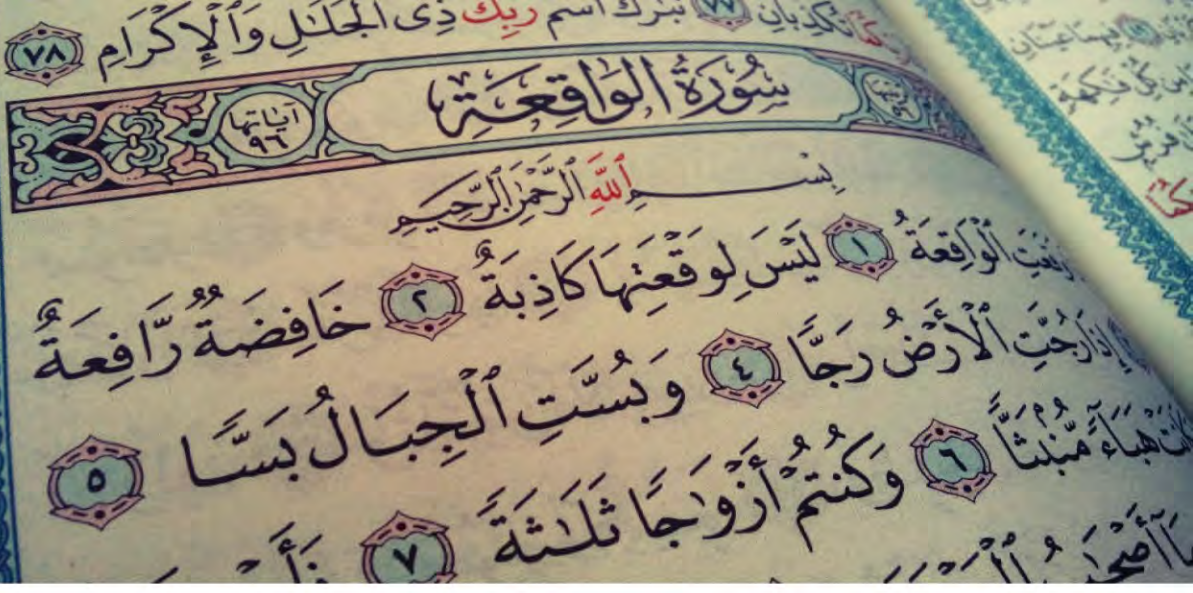 تُكَذِّبَانِ ٧٧ تَبَٰرَكَ ٱسْمُ رَبِّكَ ذِى ٱلْجَلَٰلِ وَٱلْإِكْرَامِ ٧٨
سُورَةُ الوَاقِعَةِ
آياتها ٩٦
بِسْمِ ٱللَّهِ ٱلرَّحْمَٰنِ ٱلرَّحِيمِ
وَقَعَتِ ٱلْوَاقِعَةُ ١ لَيْسَ لِوَقْعَتِهَا كَاذِبَةٌ ٢ خَافِضَةٌ رَّافِعَةٌ
إِذَا رُجَّتِ ٱلْأَرْضُ رَجًّا ٤ وَبُسَّتِ ٱلْجِبَالُ بَسًّا ٥
هَبَآءً مُّنۢبَثًّا ٦ وَكُنتُمْ أَزْوَٰجًا ثَلَٰثَةً ٧